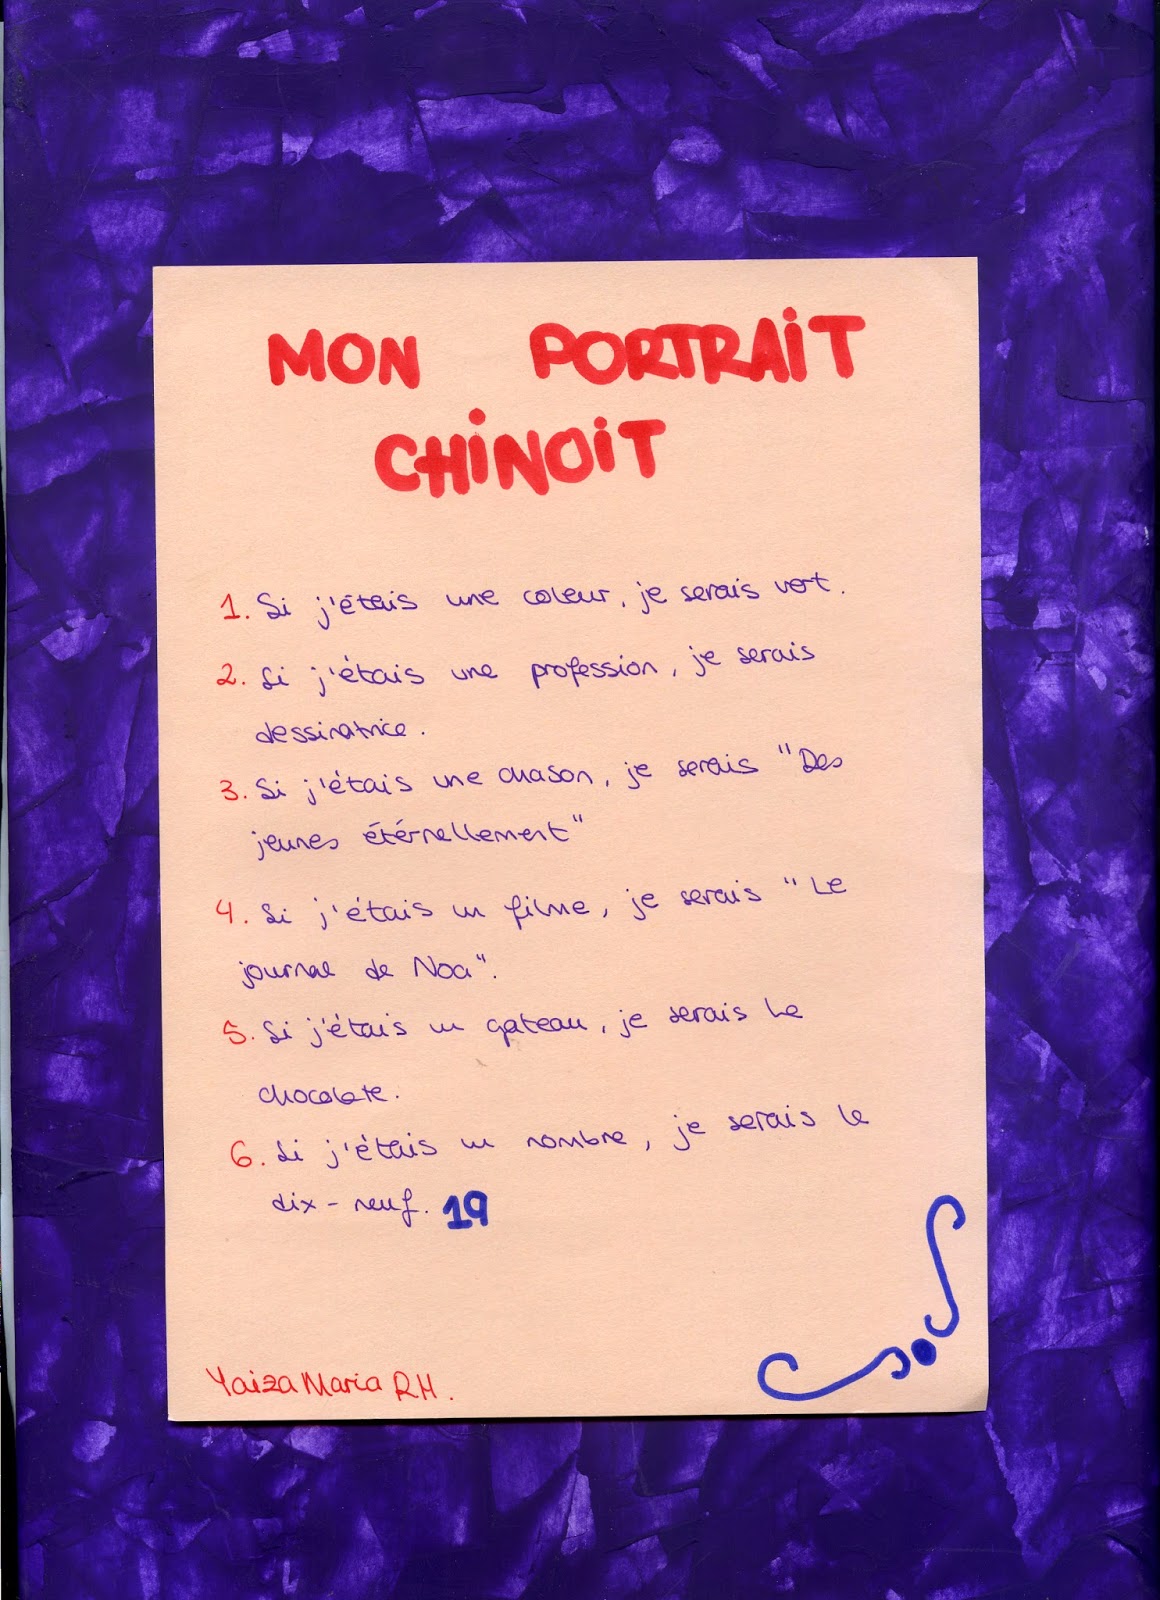 MON PORTRAIT
CHINOIT
1. Si j'étais une coleur, je serais vert.
2. Si j'étais une profession, je serais
dessinatrice.
3. Si j'étais une chason, je serais "Des
jeunes étérnellement"
4. Si j'étais un filme, je serais "Le
journal de Noa".
5. Si j'étais un gateau, je serais le
chocolate.
6. Si j'étais un nombre, je serais le
dix-neuf. 19
Yaiza Maria RH.